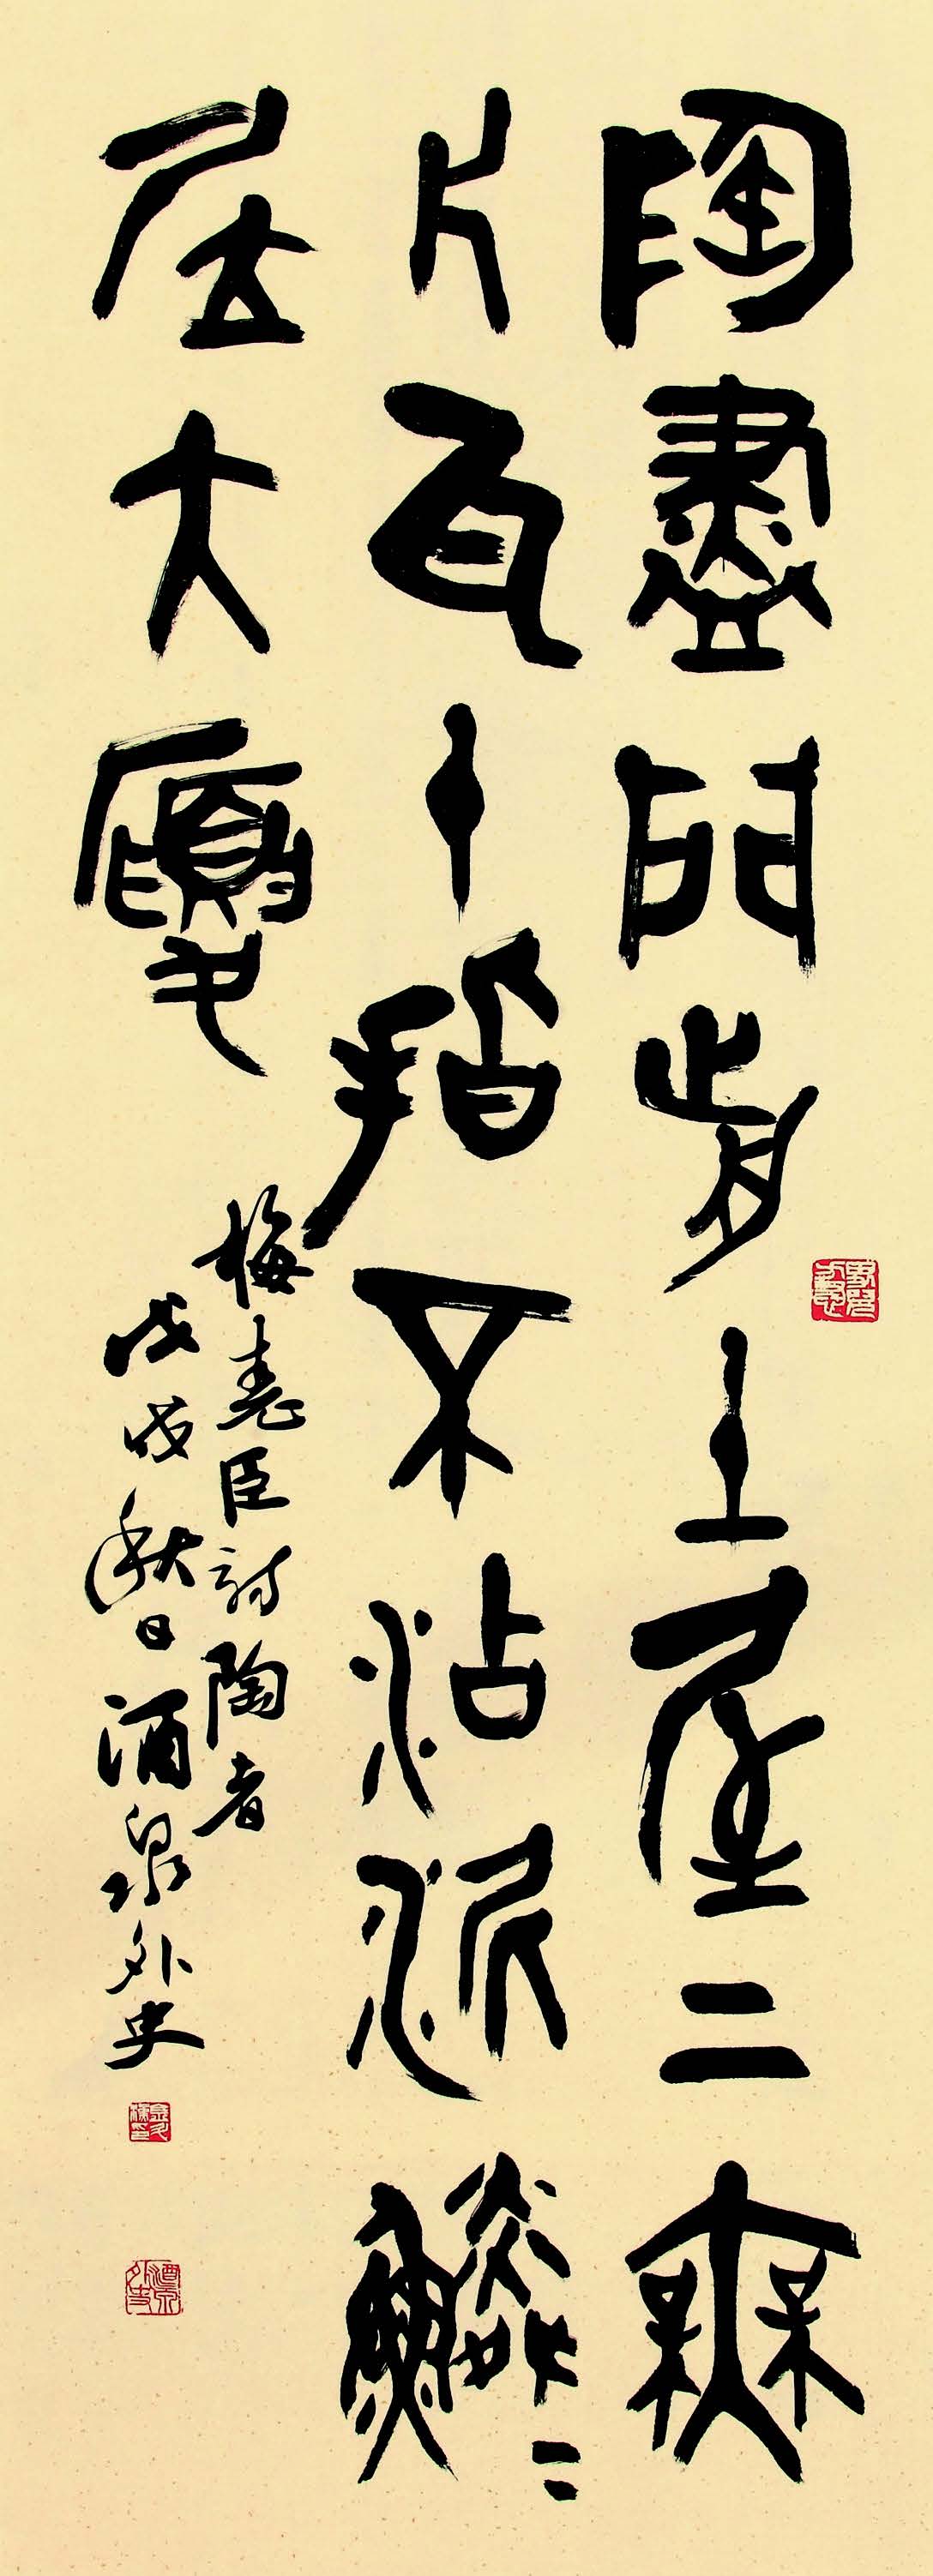 陶盡門前土屋上無
片瓦十指不沾泥鱗〻
居大廈
梅堯臣詩陶者
戊戌秋日酒泉外史
酒泉外史